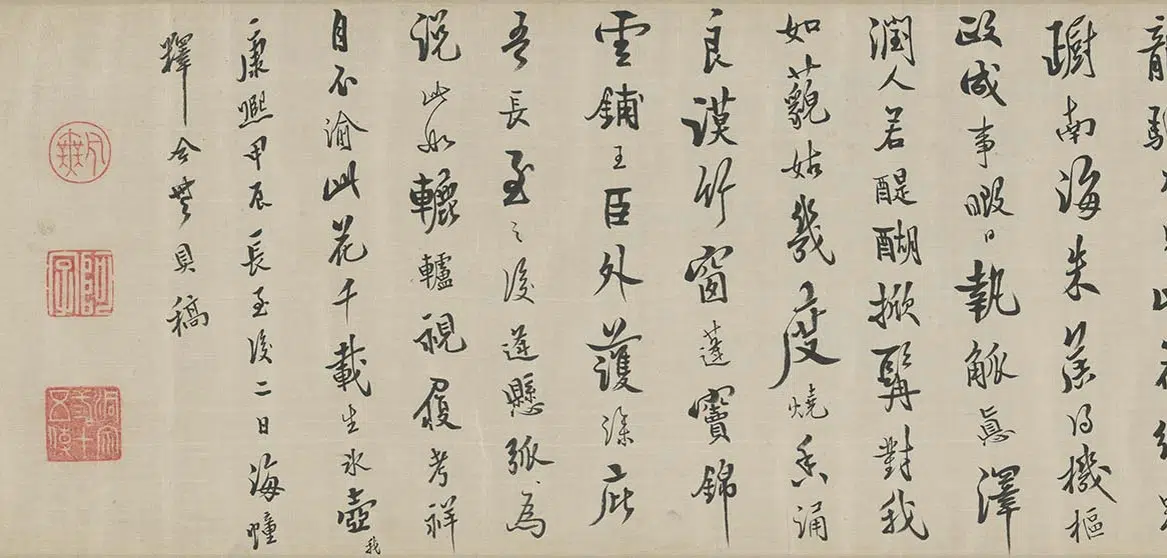 龍
躕南海朱蕉得機樞
政成事暇日執觚真澤
潤人若醍醐掀髯對我
如藐姑幾度燒香誦
良謨竹窗蓬寶錦
雲鋪王臣外護深庇
吾長至之後蓬懸弧為
說此如轆轤視履考祥
自不渝此花千載生冰壺我
康熙甲辰長至後二日海幢
釋今無具稿